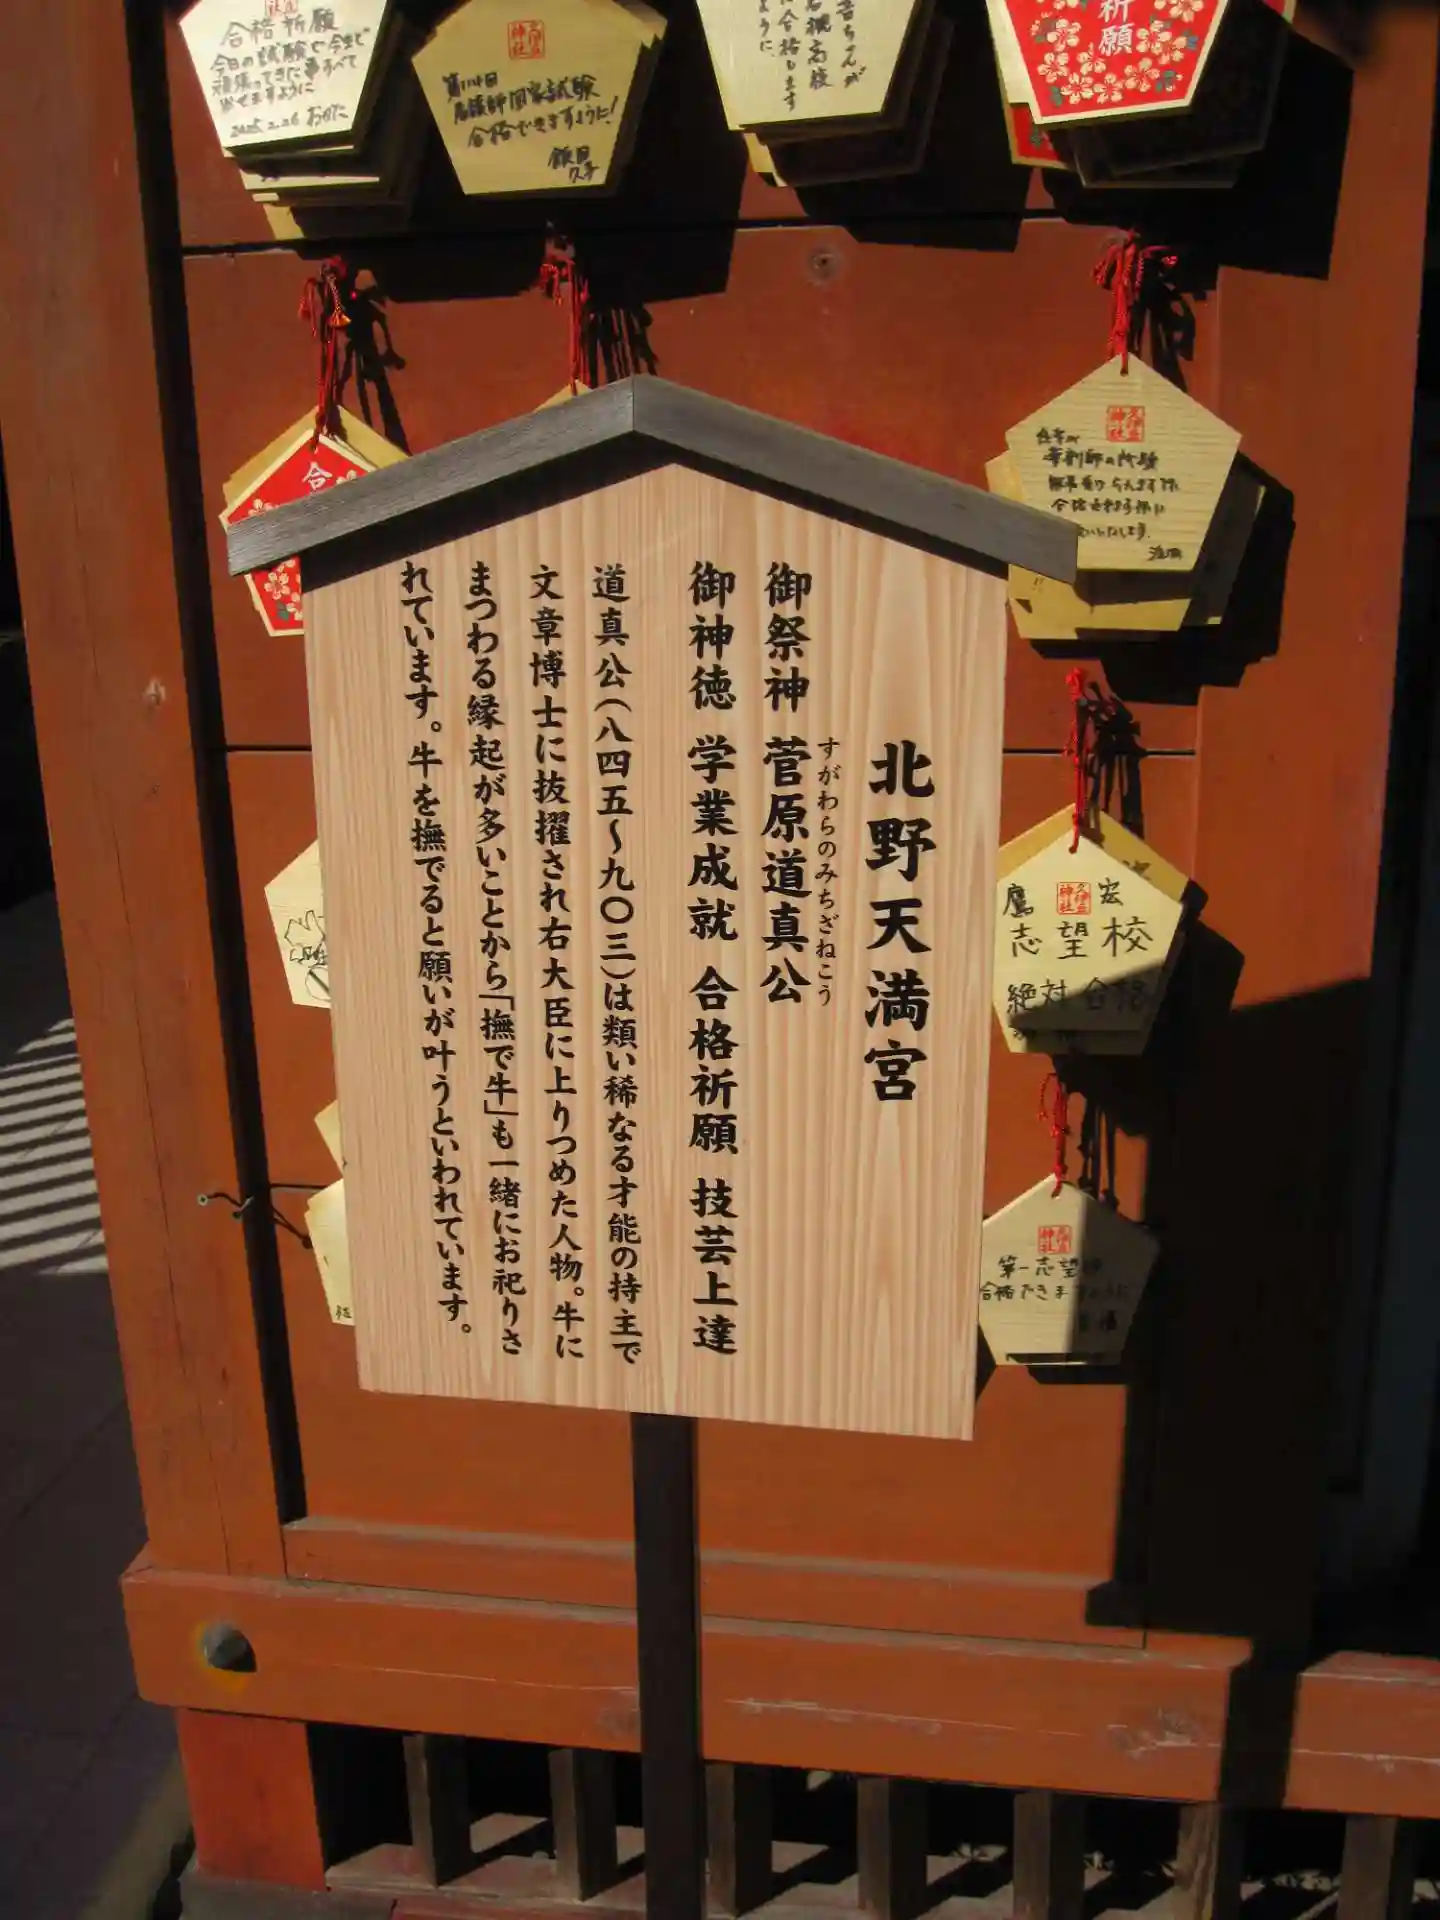 北野天満宮
御祭神 菅原道真公
すがわらのみちざねこう
御神徳 学業成就 合格祈願 技芸上達
道真公(八四五〜九〇三)は類い稀なる才能の持主で
文章博士に抜擢され右大臣に上りつめた人物。牛に
まつわる縁起が多いことから「撫で牛」も一緒にお祀りさ
れています。牛を撫でると願いが叶うといわれています。
合格祈願
今日の試験で今まで
頑張ってきた事すべて
出せますように
2025.2.26
第114回
看護師国家試験
合格できますように!
飯田
合格します
ように
高校
祈願
合
薬剤師の
合格
鷹 宏
志望校
絶対合格
第一志望
合格できま